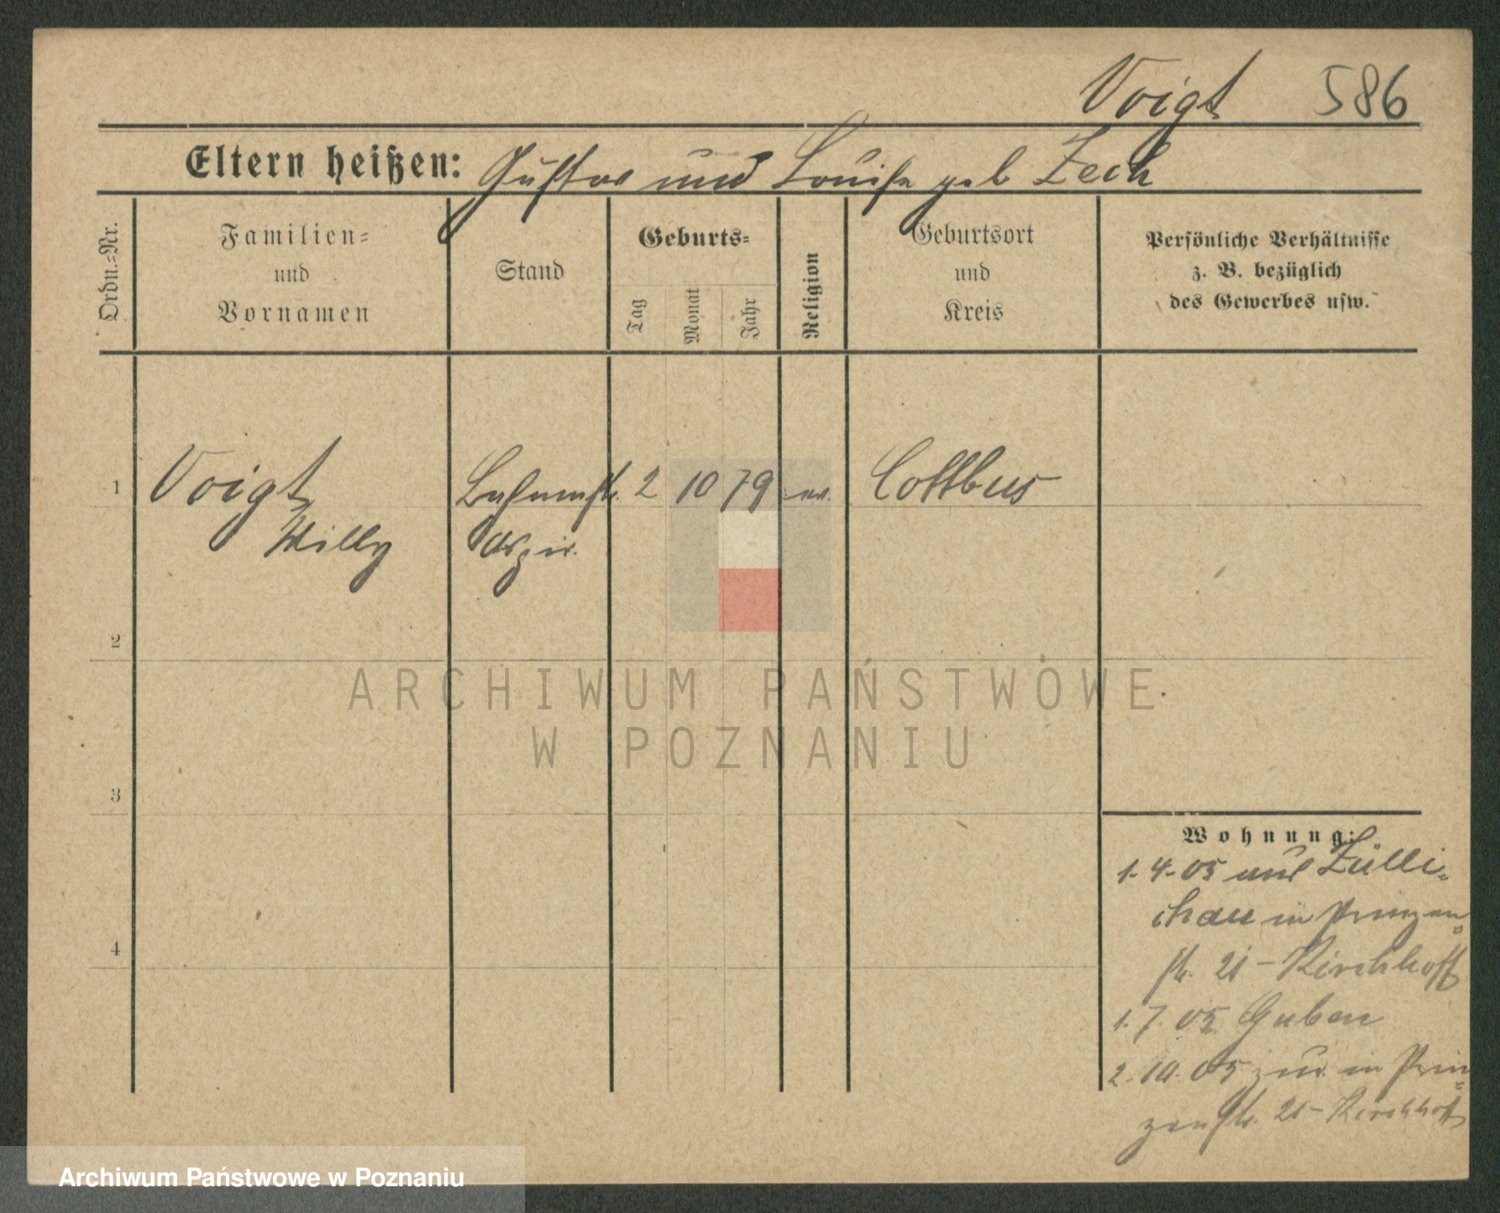 Voigt 586
Eltern heißen: Gustav und Louise geb Zech
Ordn.-Nr.
Familien-
und
Vornamen
Stand
Geburts-
Tag
Monat
Jahr
Religion
Geburtsort
und
Kreis
Persönliche Verhältnisse
z. B. bezüglich
des Gewerbes usw.
1 Voigt 2 10 79 ev. Cottbus
Willy
2
ARCHIWUM PAŃSTWOWE
W POZNANIU
3
Wohnung:
1.4.05 aus Zülli-
chau in Prinzen-
str. 21 - Kirchhoff
4
1.7.05 Guben
2.10.05 zur. in Prin-
zenstr. 21 - Kirchhoff
Archiwum Państwowe w Poznaniu